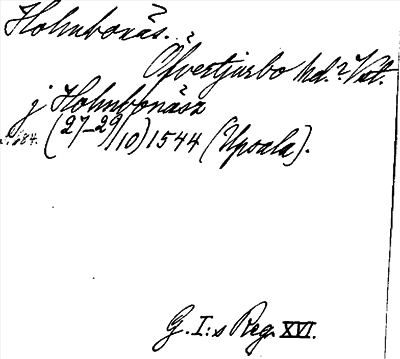 Holmbonäs.
Öfvertjurbo hd. ? Väst.
j Holmbonäsz
s. 184. (27-29/10) 1544 (Upsala).
G. I:s Reg. XVI.